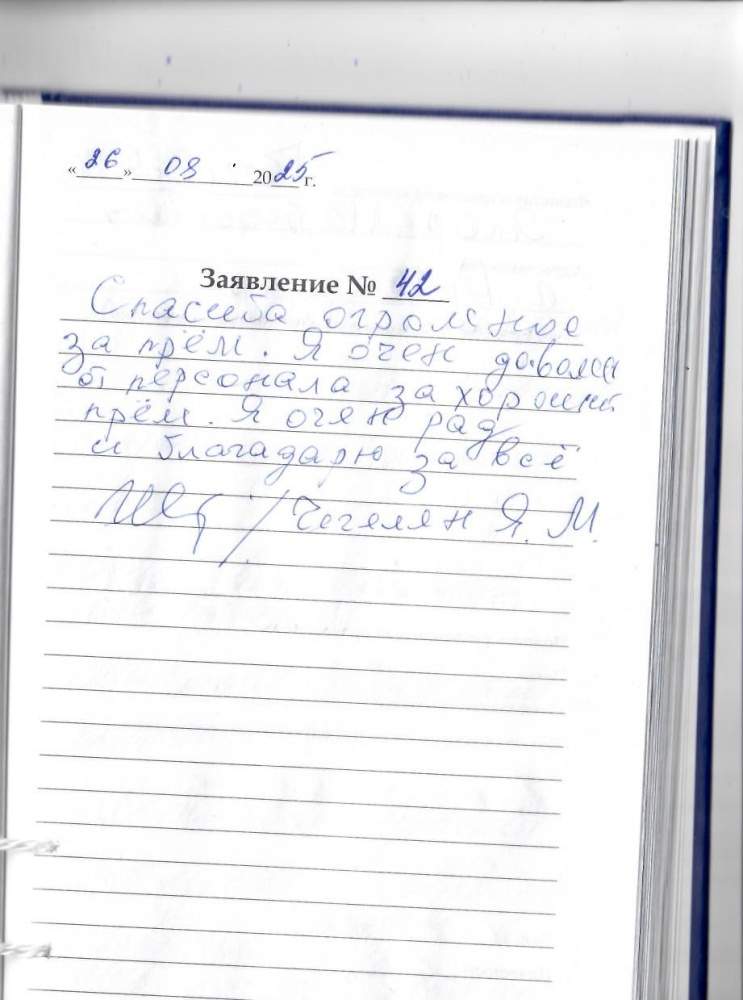 «26» 08 2025 г.
Заявление № 42
Спасиба огромное
за прём. Я очен давољен
от персонала за хороший
прём. Я очен рад
и благадарю за всё
/ Чегелян Я. М.